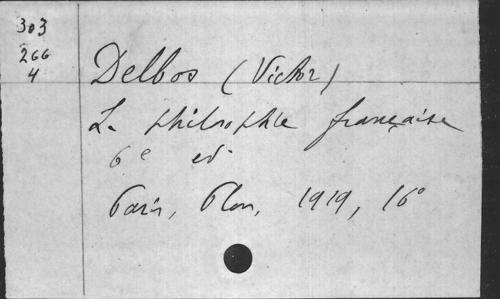 303
266
4
Delbos (Victor)
La philosophie française
6e ed
Paris, Plon, 1919, 16°